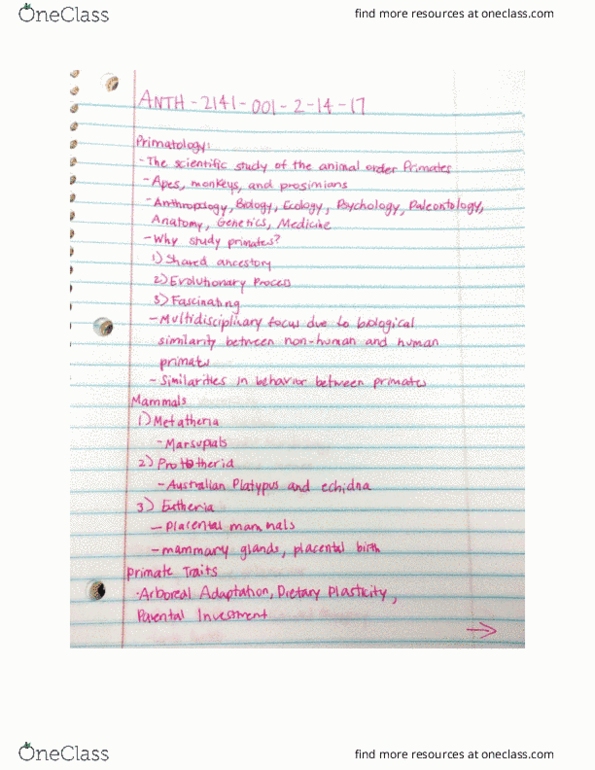 OneClass
find more resources at oneclass.com
ANTH-2141-001-2-14-17
Primatology:
-The scientific study of the animal order Primates
-Apes, monkeys, and prosimians
-Anthropology, Biology, Ecology, Psychology, Paleontology,
Anatomy, Genetics, Medicine
-Why study primates?
1) Shared ancestory
2) Evolutionary Process
3) Fascinating
-Multidisciplinary focus due to biological
similarity between non-human and human
primates
-Similarities in behavior between primates
Mammals
1) Metatheria
-Marsupials
2) Prototheria
-Australian Platypus and echidna
3) Eutheria
-Placental mammals
-mammary glands, placental birth
Primate Traits
-Arboreal Adaptation, Dietary Plasticity,
Parental Investment
OneClass
find more resources at oneclass.com